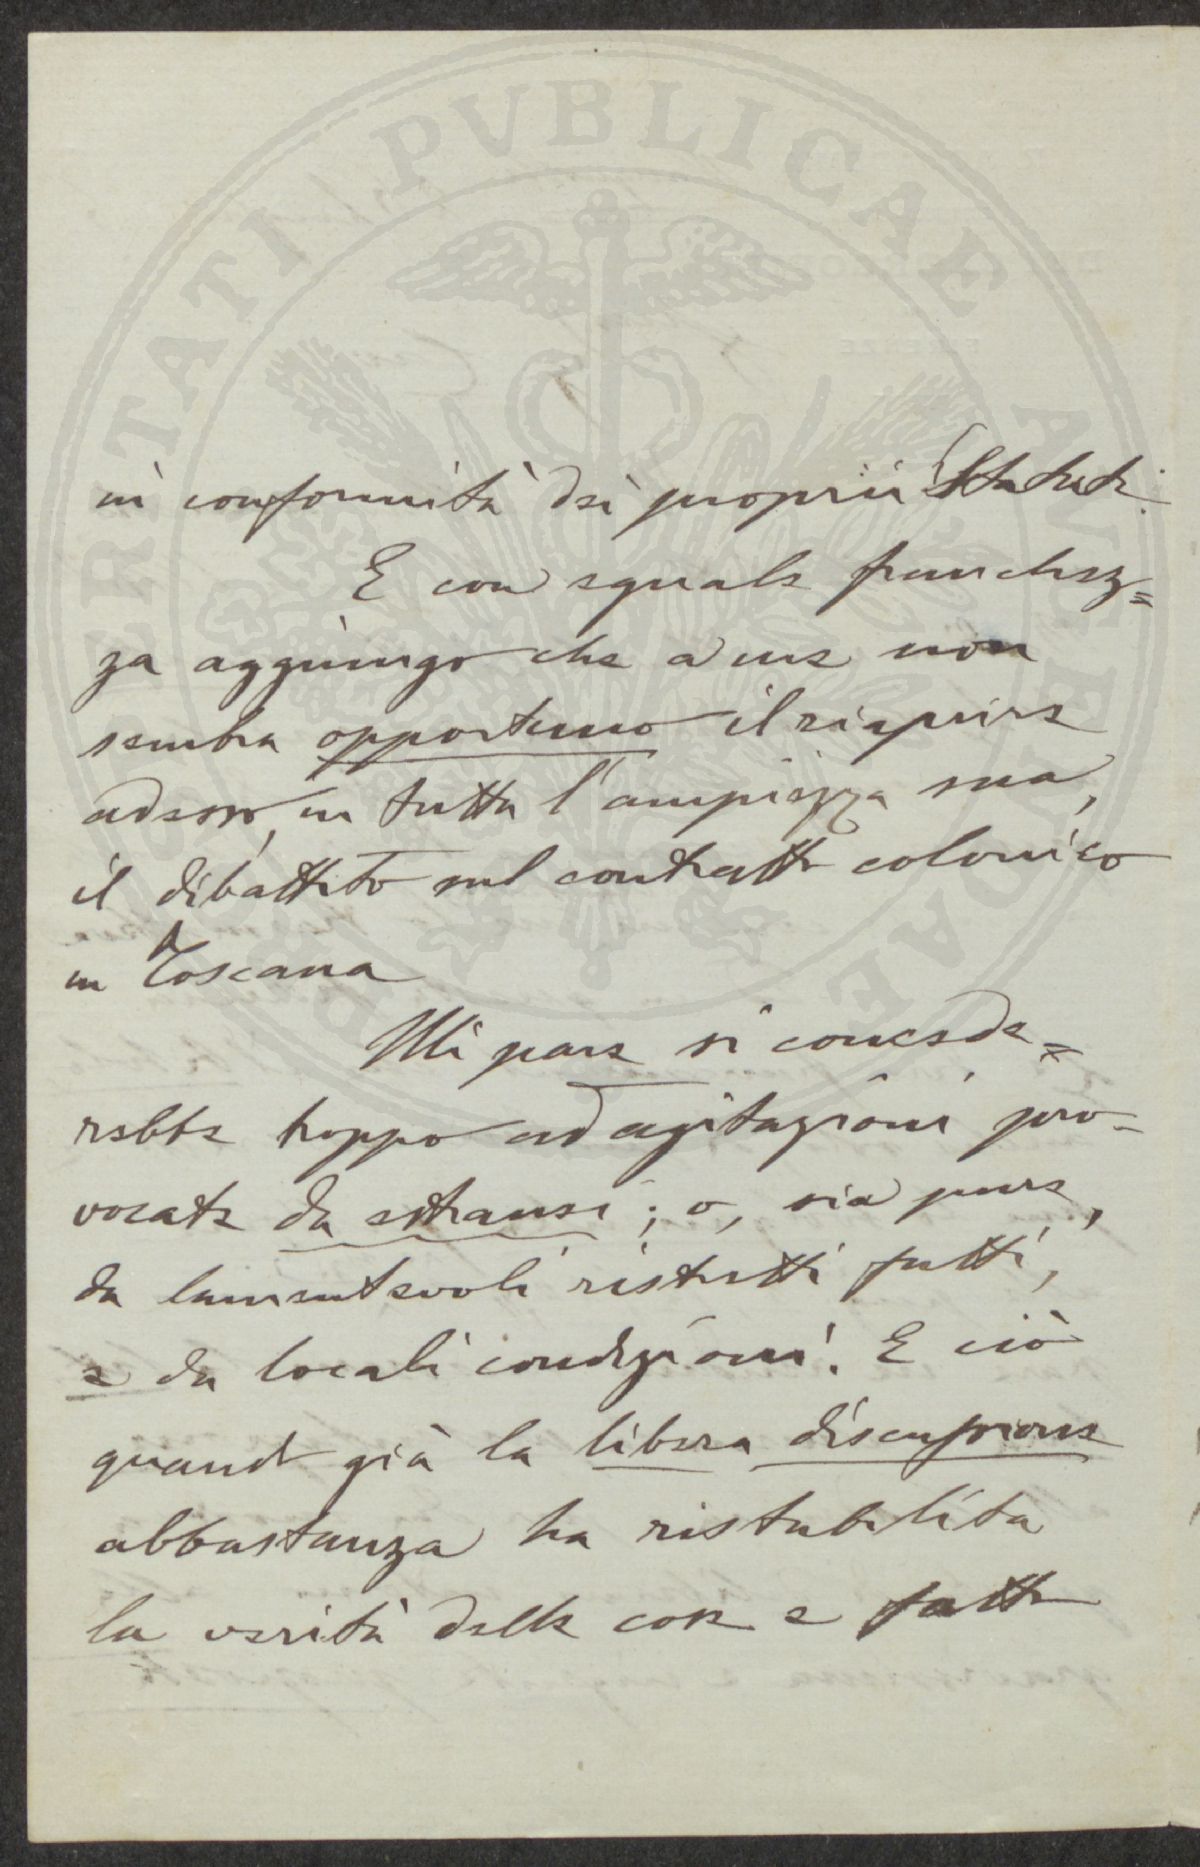 PROSPERITATI PVBLICAE AVGENDAE
in conformità dei proprii Statuti.
E con eguale franchez=
za aggiungo che a me non
sembra opportuno il riaprire
adesso, in tutta l'ampiezza sua,
il dibattito sul contratto colonico
in Toscana
Mi pare si concede=
rebbe troppo ad agitazioni pro-
vocate da estranei; o, sia pure,
da lamentevoli ristretti fatti,
e da locali condizioni. E ciò
quando già la libera discussione
abbastanza ha ristabilita
la verità delle cose e fatto